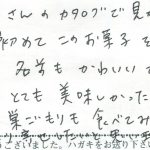 さんのカタログで見か
初めてこのお菓子を
名前もかわいい
とても美味しかった
巣ごもりも食べてみ
り寄せしたいと思い
ございました。ハガキをお送り下さい